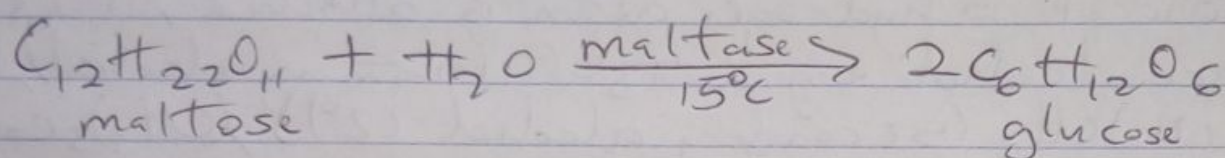 C₁₂H₂₂O₁₁ + H₂O maltase→ 2C₆H₁₂O₆
15°C
maltose glucose